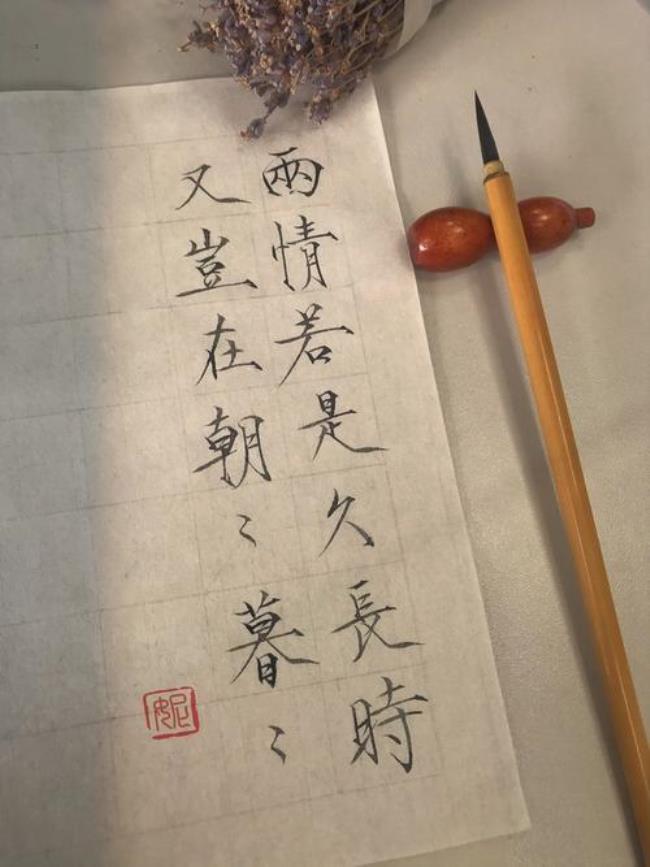 兩情若是久長時
又豈在朝〻暮〻
妮